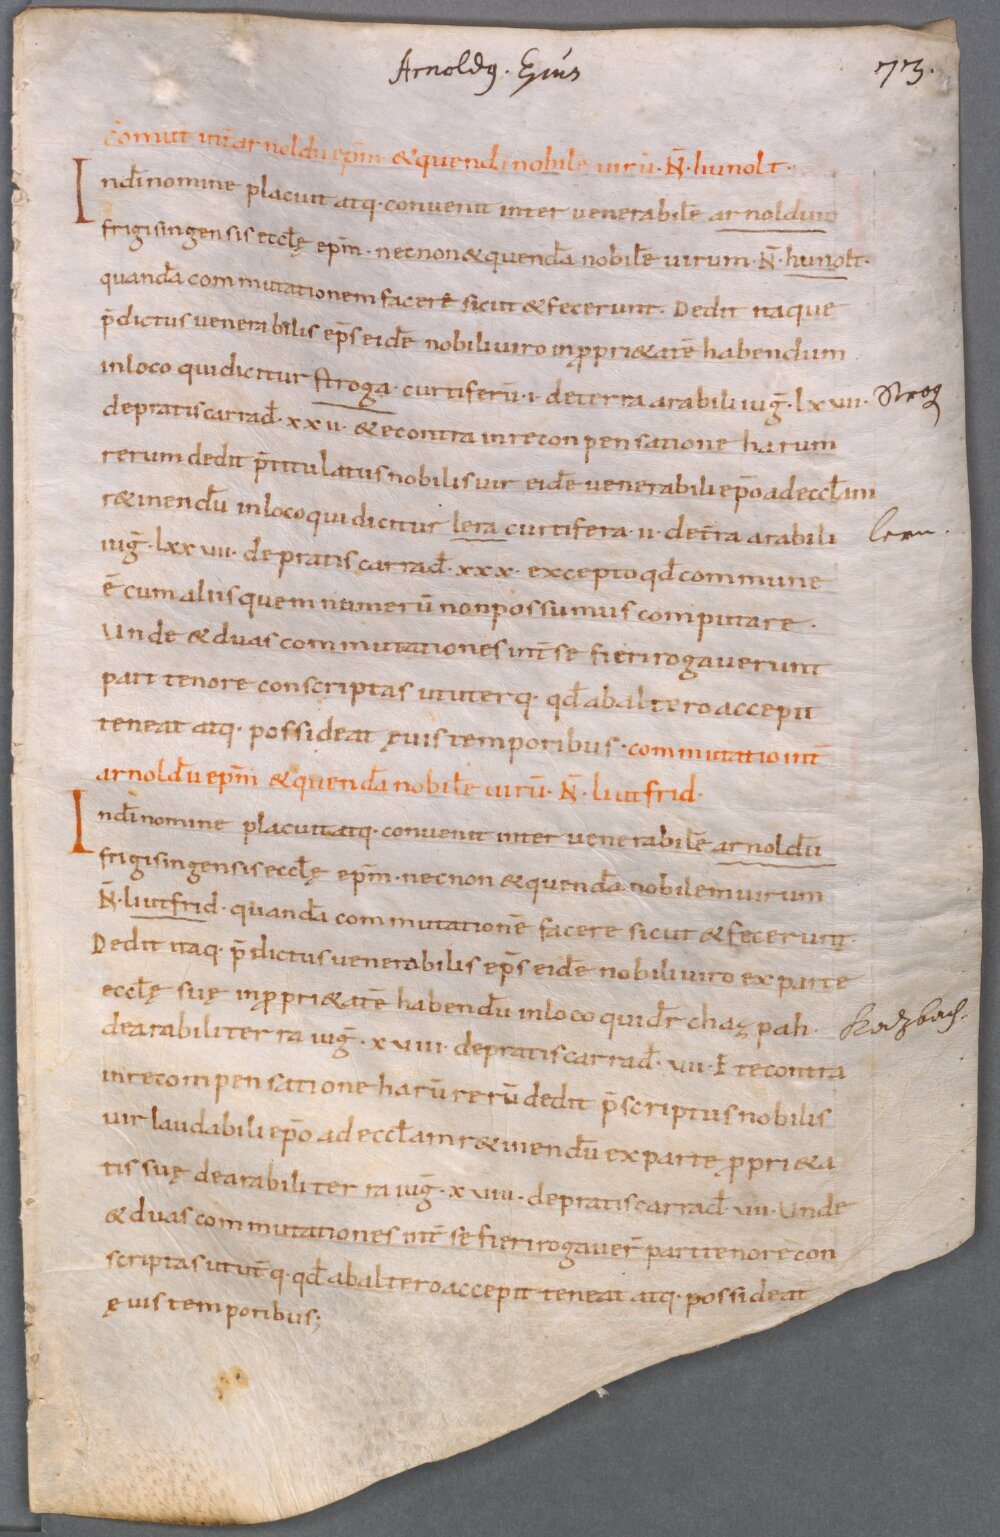 Arnoldꝰ. Epiūs
73.
Comut int̄ arnoldū epm̄ & quendā nobilē uirū · N̄ · hunolt ·
Indī nomine placuit atq· convenit inter venerabilē arnoldum
frigisingensis eccłę epm̄ · necnon & quendā nobilē uirum · N̄ · hunolt ·
quandā commutationem facere sicut & fecerunt · Dedit itaque
p̄dictus venerabilis ep̄s eidē nobili uiro in ꝓpri&atē habendum
in loco qui dicitur stroga · curtiferū · i · de terra arabili iug̅ · lxvii ·
Strog
de pratis carrad̅ · xxii · & econtra in reconpensatione harum
rerum dedit p̄titulatus nobilis uir eidē venerabili ep̄o ad eccłam
r&inendū in loco qui dicitur lera curtifera · ii · de tr̄a arabili
lern.
iug̅ · lxxvii · de pratis carrad̅ · xxx · excepto qd̄ commune
ē cum aliis quem numerū non possumus computare ·
Unde & duas commutationes int̄ se fieri rogaverunt
pari tenore conscriptas ut uterq· qd̄ ab altero accepit
teneat atq· possideat ęvis temporibus · commutatio int̄
arnoldū epm̄ & quendā nobilē uirū · N̄ · liutfrid ·
Indī nomine placuit atq· convenit inter venerabilē arnoldū
frigisingensis eccłę epm̄ · necnon & quendā nobilem uirum
N̄ · liutfrid · quandā commutationē facere sicut & fecerunt ·
Dedit itaq· p̄dictus venerabilis ep̄s eidē nobili uiro ex parte
eccłę suę in ꝓpri&atē habendū in loco qui dr̄ chazpah ·
Kazbach.
de arabili terra iug̅ · xviii · de pratis carrad̅ · vii · Et econtra
in recompensatione harū rerū dedit p̄scriptus nobilis
uir laudabili ep̄o ad eccłam r&inendū ex parte ꝓpri&a
tis suę de arabili terra iug̅ · xviii · de pratis carrad̅ · vii · Unde
& duas commutationes int̄ se fieri rogaver̄ pari tenore con
scriptas ut ut̄q· qd̄ ab altero accepit teneat atq· possideat
ęvis temporibus;